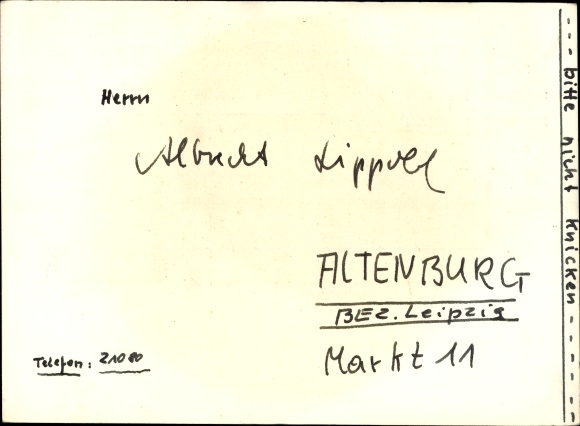 Herrn
Albrecht Lippold
ALTENBURG
BEZ. Leipzig
Markt 11
Telefon: 21080
---- bitte nicht knicken ------